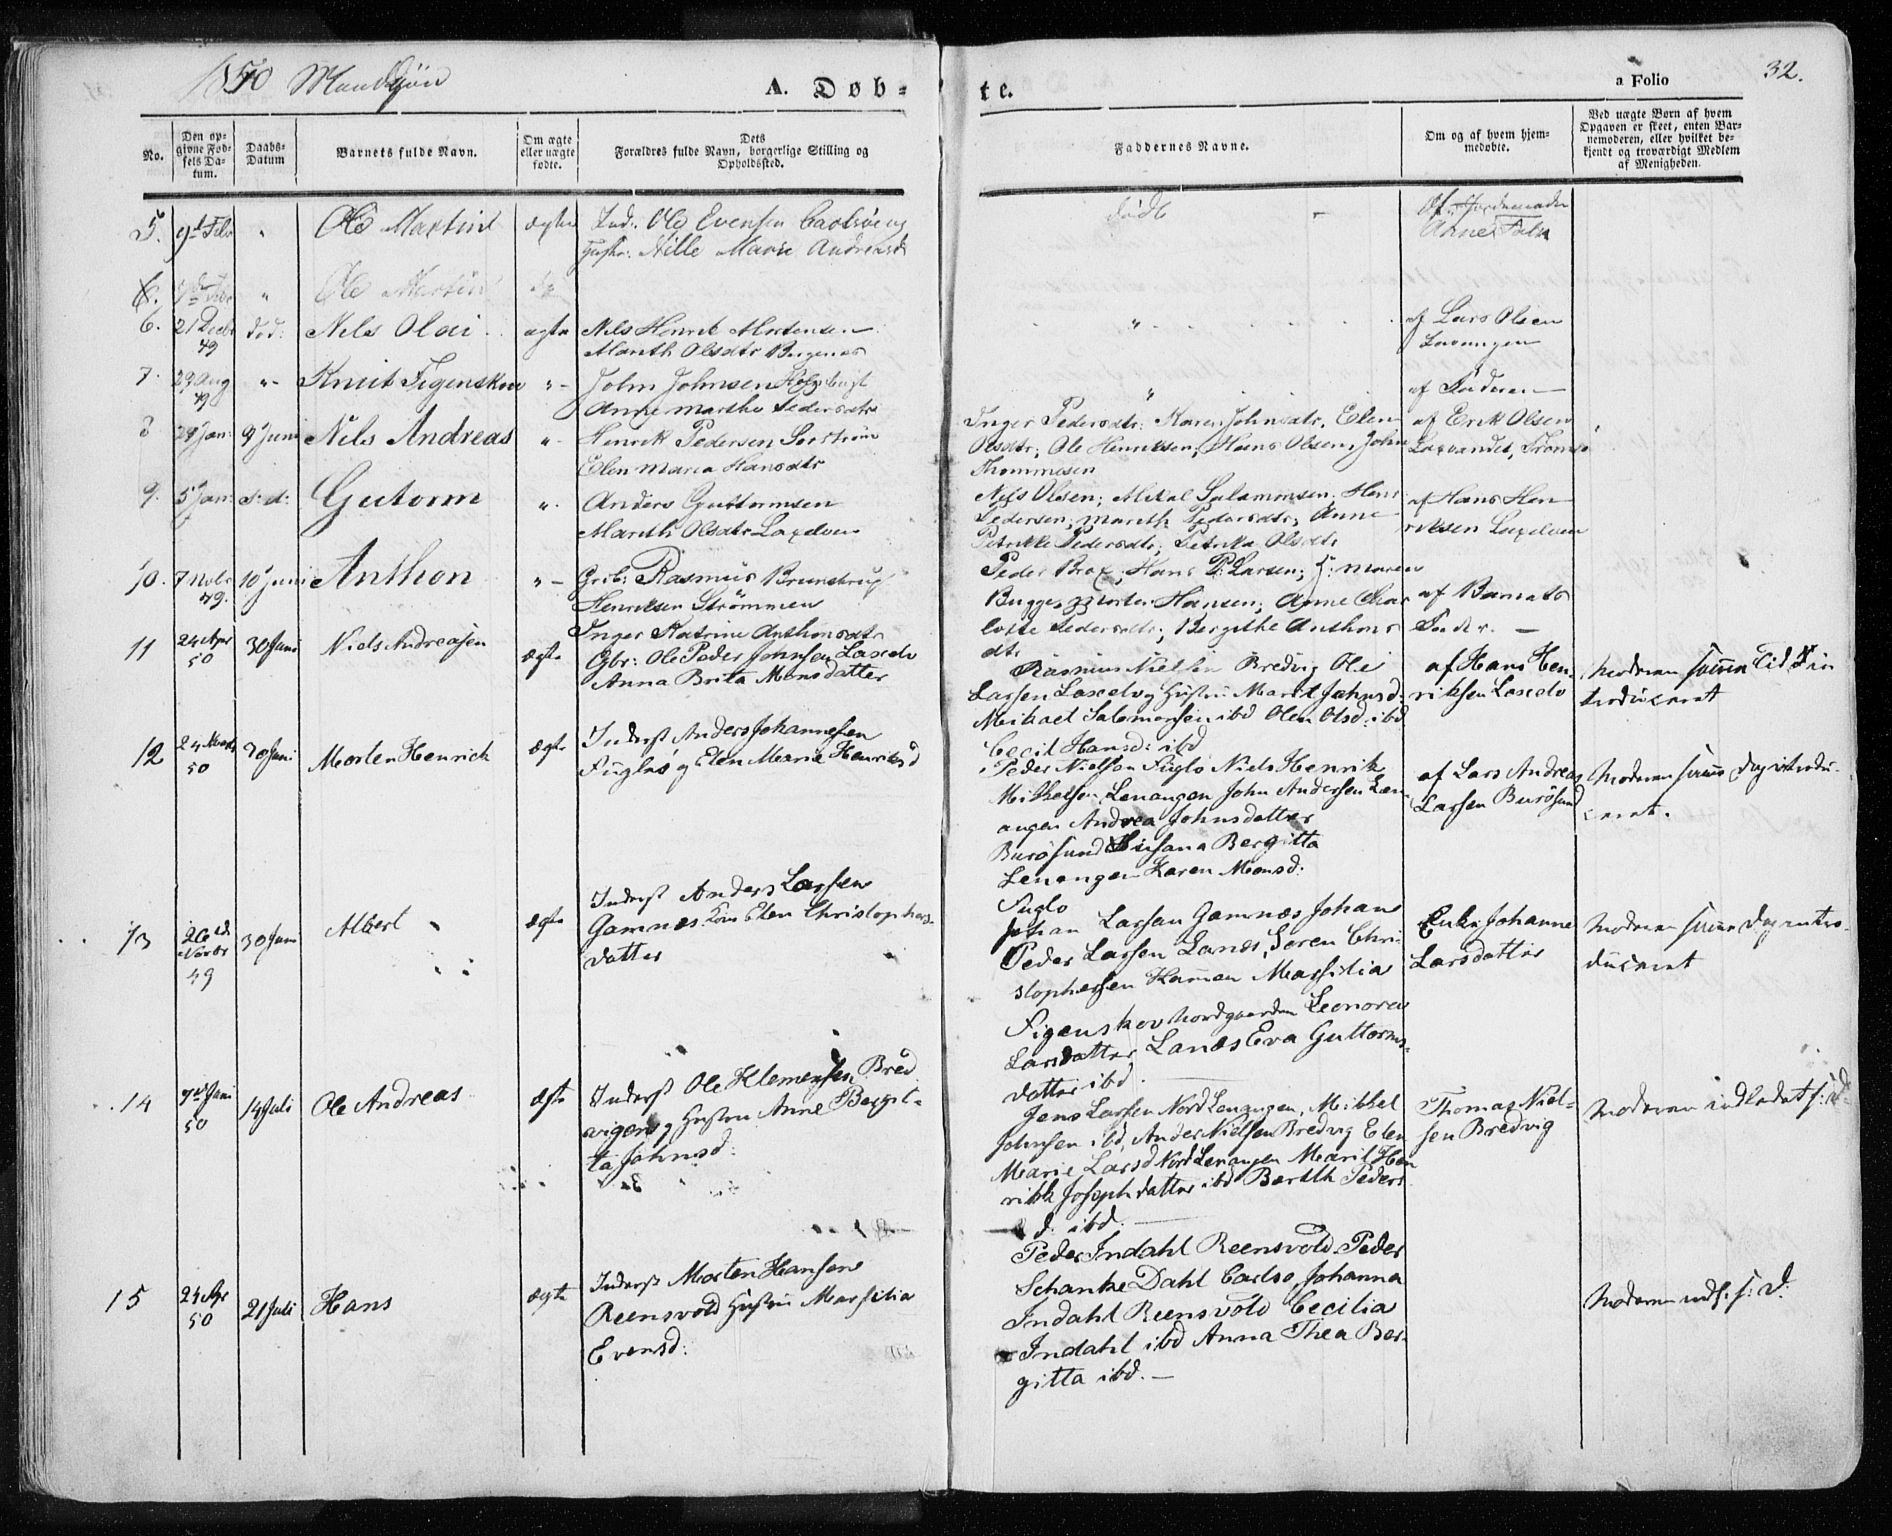 1850 Mandkjøn
A. Døb-
te.
a Folio
32.
No.
Den op-
givne Fød-
sels Da-
tum.
Daabs-
Datum
Barnets fulde Navn.
Om ægte
eller uægte
fødte.
Dets
Forældres fulde Navn, borgerlige Stilling og
Opholdssted.
Faddernes Navne.
Om og af hvem hjem-
medøbte.
Ved uægte Børn af hvem
Opgaven er skeet, enten Bar-
nemoderen, eller hvilket be-
kjendt og troværdigt Medlem
af Menigheden.
5. 9d Febr " Ole Martin ægte Ind: Ole Evensen
Hustr: Nille Marie
død
af Jordemoder
Ole Martin
6. 21 Decbr 49 død: Nils Olai ægte Nils Henrik Mortensen
Marith Olsdtr
"
af Lars Olsen
Lavangen
7. 29 Aug 49 "- Knut Figenskou "- John Johnsen
Anne Marthe Pedersdtr
"
af Faderen
8 28 Jan: 9 Juni Nils Andreas "- Henrik Pedersen
Elen Maria Hansdtr
Inger Pedersdtr; Karen Johnsdtr, Elen
Olsdtr; Ole Henriksen; Hans Olsen, John
Thommesen
af Erik Olsen
Laxvandet, Tromsø
9. 5 Jan: s: d: Gutorm ". Anders Guttormsen
Marith Olsdtr Laxelven
Nils Olsen; Mikal Salamonsen; Hans
Pedersen; Marith Pedersdtr; Anne
Petrikke Pedersdtr; Petrika Olsdtr
af Hans Hen-
riksen Laxelven
10. 7 Novbr 49. 10 Juni Anthon "- Grb: Rasmus Brunstrup
Henriksen Strømmen
Inger Katrine Anthonsdtr
Peder Brox; Hans P: Larsen; J: Maren
Bugge; Morten Hansen; Anne Char
lotte Pedersdtr; Bergithe Anthons
dtr
af Barnets
Fader. -
11 24 Apr 50 30 Juni Niels Andreasen ægte Gbr: Ole Peder Johnsen Laxelv
Anna Brita Monsdatter
Rasmus Nielsen Bredvig Ole
Larsen Laxelv og Hustru Marit Johnsd:
Mikael Salomonsen ibd Olen Olsd: ibd
Cecil Hansd: ibd
af Hans Hen-
riksen Laxelv
Moderen samme Tid in
troduceret
12 24 Marts 50 30 Juni Morten Henrich ægte Inderst Anders Johannesen
Fuglø og Elen Marie Henriksd
Peder Nielsen Fuglø Niels Henrik
Mikkelsen Lenangen John Andersen Len
angen Andrea Johnsdatter
Burøsund Susana Bergitta
Lenangen Karen Monsd:
Fuglø
af Lars Andreas
Larsen Burøsund
Moderen samme Dag introdu-
ceret.
13 26d Novbr 49 30 Juni Albert ægte Inderst Anders Larsen
Gamnes Kone Elen Christophers-
datter
Johan Larsen Gamnes Johan
Peder Larsen Lanes, Søren Chri-
stophersen Hamen Marsilia
Figenskov Nordgaarden Leonora
Larsdatter Lanes Eva Guttorms-
datter ibd.
Enke Johanne
Larsdatter
Moderen samme Dag intro-
duceret
14 7d Juni 50 14 Juli Ole Andreas ægte Inderst Ole Klemensen Bred
vigen og Hustru Anne Bergit-
ta Johnsd:
Jens Larsen Nord Lenangen, Mikkel
Johnsen ibd, Anders Nielsen Bredvig Elen
Marie Larsd Nord Lenangen Marit Hen
rikk Josephdatter ibd Berith Peders
d. ibd.
Thomas Niel-
sen Bredvig
Moderen indledet s: D.
15 24 Apr 50 21 Juli Hans ægte Inderst Morten Hansen
Reensvold Hustru Marsilia
Evensd:
Peder Indahl Reensvold Peder
Schanke Dahl Carlsø Johanna
Indahl Reensvold Cecilia
Indahl ibd Anna Thea Ber-
gitta ibd. -
Moderen indl. s: D.